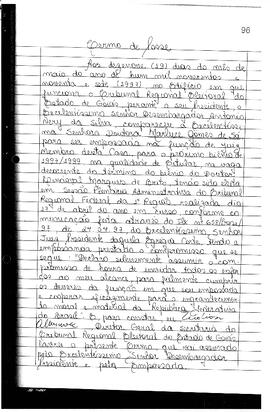 96
Termo de Posse
Aos dezenove (19) dias do mês de
maio do ano de hum mil novecentos e
noventa e sete (1997) no Edifício em que
funciona o Tribunal Regional Eleitoral do
Estado de Goiás perante o seu Presidente o
Excelentíssimo Senhor Desembargador Antônio
Nery da Silva compareceu a Excelentíssi-
ma Senhora Doutora Gomes de Sá
para ser empossada na função de Juiz
membro desta Casa, para o próximo biênio de
1997/1999 na qualidade de Titular na vaga
decorrente do término do biênio do Doutor
Marques de tendo sido eleita
em Sessão Plenária Administrativa do Tribunal
Regional Federal da 1ª Região realizada dia
de abril do ano em curso, conforme co-
municação feita através do
97 de 24.04.97 do Excelentíssimo Senhor
Juiz Presidente daquela Egrégia Corte. Tendo a
empossanda prestado o compromisso que se
segue: "Declaro solenemente assumir o com-
promisso de honra de envidar todos os esfor-
ços ao meu alcance, para fielmente cumprir
os deveres da função em que sou empossada
e colaborar eficazmente para o engrandecimen-
to moral e material da República Federativa
do Brasil". E, para constar eu
Diretor Geral da Secretaria do
Tribunal Regional Eleitoral do Estado de Goiás
lavrei o presente Termo, que vai assinado
pelo Excelentíssimo Senhor Desembargador
Presidente e pela Empossada.